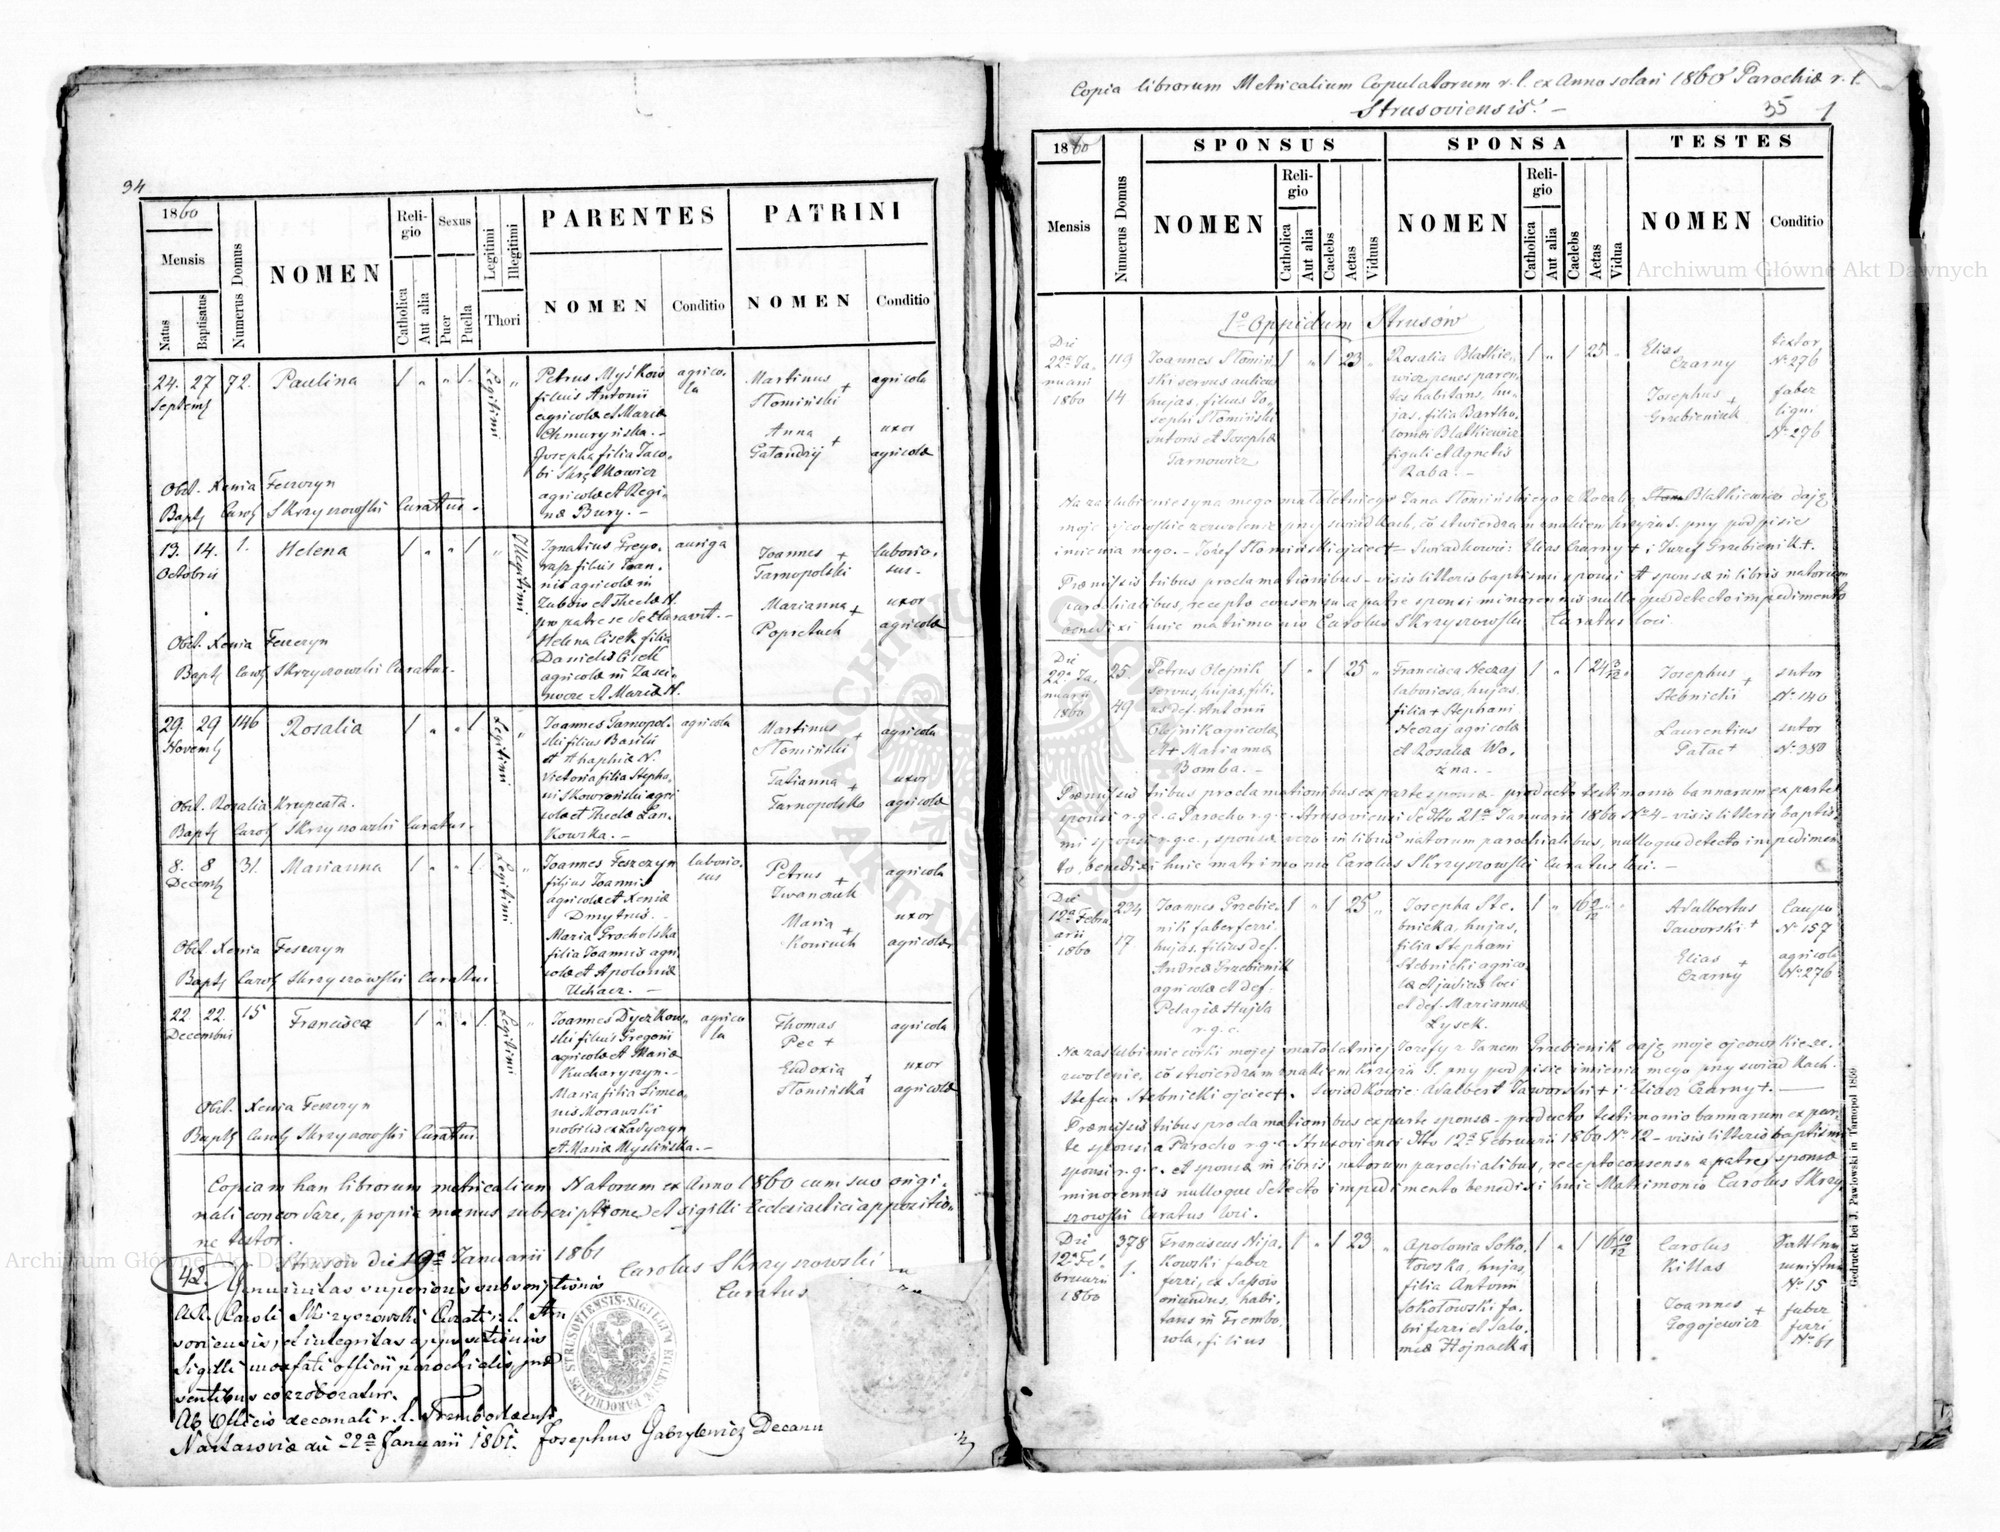 34
1860
Mensis
Natus
Baptisatus
Numerus Domus
NOMEN
Religio
Catholica
Aut alia
Sexus
Puer
Puella
Legitimi
Illegitimi
Thori
PARENTES
NOMEN
Conditio
PATRINI
NOMEN
Conditio
24. 27 72. Paulina
Septemb
Legitimi
Petrus Myśków
filius Antonii
agricolæ et Mariæ
Chmuryńska. -
Josepha filia Jaco-
bi
agricolæ et Regi-
næ Bury. -
agrico-
la
Martinus +
Słomiński
Anna +
agricola
uxor
agricolæ
Obst. Xenia Feszczyn
Bapt Carol Skrzyszowski Curatus.
13. 14. 1. Helena
Octobris
Illegitimi
Ignatius
filius Joan-
nis agricolæ in
Zubow et Theclæ N.
pro patre se declaravit. -
Helena Cisek filia
Danielis Cisek
agricolæ in
et Mariæ N.
auriga
Joannes +
Tarnopolski
Marianna +
laborio-
sus -
uxor
agricolæ
Obst. Xenia Feszczyn
Bapt Carol Skrzyszowski Curatus.
29. 29 146 Rosalia
Novemb
Legitimi
Joannes Tarnopol-
ski filius Basilii
et Ahaphiæ N.
Victoria filia Stepha-
ni Skowroński agri
colæ et Theclæ Łan-
kowska. -
agricola
Martinus +
Słomiński
Tatianna +
Tarnopolska
agricola
uxor
agricolæ
Obst. Rozalia Krupcata.
Bapt Carol Skrzyszowski Curatus.
8. 8 31. Marianna
Decemb
Legitimi
Joannes Feszczyn
filius Joannis
agricolæ et Xeniæ
Dmytriś. -
Maria Grocholska
filia Joannis agri
colæ et Apoloniæ
laborio-
sus
Petrus +
Iwanczuk
Maria +
agricola
uxor
agricolæ
Obst. Xenia Feszczyn
Bapt Carol Skrzyszowski Curatus
22 22. 15 Francisca
Decembris
Legitimi
Joannes Dyczkow-
ski filius Gregorii
agricolæ et Mariæ
Kucharyszyn. -
Maria filia Simeo-
nis Morawski
nobilis ex
et Mariæ Myślińska. -
agrico
la
Thomas
Pec +
Eudoxia +
Słomińska
agricola
uxor
agricolæ
Obst. Xenia Feszczyn
Bapt Carol Skrzyszowski Curatus
Copiam han librorum metricalium Natorum ex Anno 1860 cum suo origi-
nali concordare, propria manus subscriptione et sigilli Ecclesiastici appositio-
ne testor.
Strusow die 19a Januarii 1861
Carolus Skrzyszowski
Curatus
42.
Genuinitas superioris subscriptionis
Caroli Skrzyszowski Curati r. l.
soviensis, et integritas appositionis
Sigilli officii parochialis, præ
sentibus corroboratur.
Ab Officio decanali r. l. Trembowlensi
Nastasoviæ die 22a Januarii 1861. Josephus Gabrylewicz Decanu
Copia librorum Metricalium Copulatorum r. l. ex Anno solari 1860 Parochiæ r. l.
Strusoviensis. -
35 1
1860
Mensis
Numerus Domus
SPONSUS
NOMEN
Religio
Catholica
Aut alia
Caelebs
Aetas
Viduus
SPONSA
NOMEN
Religio
Catholica
Aut alia
Caelebs
Aetas
Vidua
TESTES
NOMEN
Conditio
1o Oppidum Strusów
Die
22a Ja-
nuarii
1860
119
14
Joannes Słomiń-
ski servus aulicus
hujas, filius Jo-
sephi Słomiński
sutoris et Josephæ
Tarnowicz
23
Rosalia Blatkie-
wicz penes paren-
tes habitans, hu-
jas, filia Bartho-
lomæi Blatkiewicz
figuli et Agnetis
Raba. -
25
Elias
Czarny
Josephus +
Grzebieniuk
textor
No 276
faber
ligni
No 276
Na zaślubienie syna mego małoletniego Jana Słomińskiego z Rozalią Blatkiewicz daję
moje ojcowskie zezwolenie przy świadkach, co stwierdzam znakiem krzyża s. przy podpisie
imienia mego. - Józef Słomiński ojciec + - Swiadkowie: Elias Czarny + i Juzef Grzebienik +.
Præmissis tribus proclamationibus - visis litteris baptismi sponsi et sponsæ in libris natorum
parochialibus, recepto consensu a patre sponsi minorennis nulloque detecto impedimento
benedixi huic matrimonio Carolus Skrzyszowski Curatus loci.
Die
22a Ja-
nuarii
1860
25.
49
Petrus Olejnik
servus, hujas, fili-
us def. Antonii
Olejnik agricolæ
et + Mariannæ
Bomba. -
25
Francisca Neczaj
laboriosa, hujas.
filia + Stephani
Neczaj agricolæ
et Rosaliæ Wo-
źna. -
24 3/12
Josephus +
Stebnicki
Laurentius
Pałac +
sutor
No 140
sutor
No 380
Præmissis tribus proclamationibus ex parte sponsæ - producto testimonio bannarum ex parte
sponsi r. g. c. a Parocho r. g. c. Strusoviensi de dtto 21a Januarii 1860 No 4 - visis litteris baptis-
mi sponsi r. g. c., sponsæ vero in libris natorum parochialibus, nulloque detecto impedimen-
to, benedixi huic matrimonio Carolus Skrzyszowski Curatus loci. -
Die
12a Febru
arii
1860
234
17.
Joannes Grzebie-
nik faber ferri,
hujas, filius def.
Andreæ Grzebienik
agricolæ et def.
Pelagiæ Hujda
r. g. c.
25
Josepha Ste-
bnicka, hujas,
filia Stephani
Stebnicki agrico-
læ et judicis loci
et def. Mariannæ
Łysek.
Adalbertus
Jaworski +
Elias +
Czarny
Caupo
No 157
agricola
No 276
Na zaślubienie córki mojej małoletniej Jozefy z Janem Grzebienik daję moje ojcowskie ze-
zwolenie, co stwierdzam znakiem krzyża S. przy podpisie imienia mego przy świadkach.
Stefan Stebnicki ojciec +. Swiadkowie: Adalbert Jaworski + i Eliasz Czarny +. -
Præmissis tribus proclamationibus ex parte sponsæ - producto testimonio bannarum ex par-
te sponsi a Parocho r. g. c. Strusoviensi dtto 12a Februarii 1860 No 12 - visis litteris baptismi
sponsi r. g. c. et sponsæ in libris natorum parochialibus, recepto consensu a patre sponsæ
minorennis nulloque detecto impedimento benedixi huic Matrimonio Carolus Skrzy-
szowski Curatus loci.
Die
12a Fe-
bruarii
1860
378
1.
Franciscus Nija-
kowski faber
ferri, ex Sassow
oriundus, habi-
tans in Trembo-
wla, filius
23
Apolonia Soko-
łowska, hujas,
filia Antonii
Sokołowski fa-
bri ferri et Salo-
meæ Hojnacka
16 10/12
Carolus
Killas
Joannes +
Gogojewicz
No 15
faber
ferri
No 61
Gedruckt bei J. Pawlowski in Tarnopol 1859.
Archiwum Główne Akt Dawnych
Archiwum Główne Akt Dawnych
ARCHIWUM GŁÓWNE AKT DAWNYCH